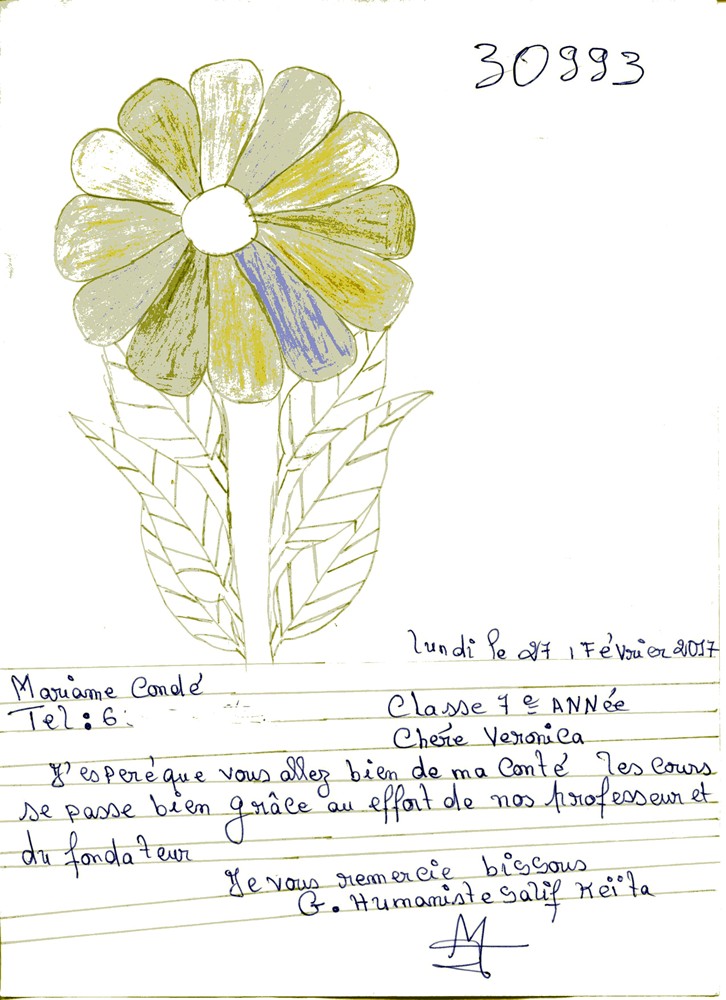 30993
lundi le 27 , Février 2017
Mariame Condé
Tel : 6
Classe 7e ANNée
Chère Veronica
J'esperé que vous allez bien de ma Conté les cours
se passe bien grâce au effort de nos professeur et
du fondateur
Je vous remercie bissous
G. Humaniste Salif Keïta